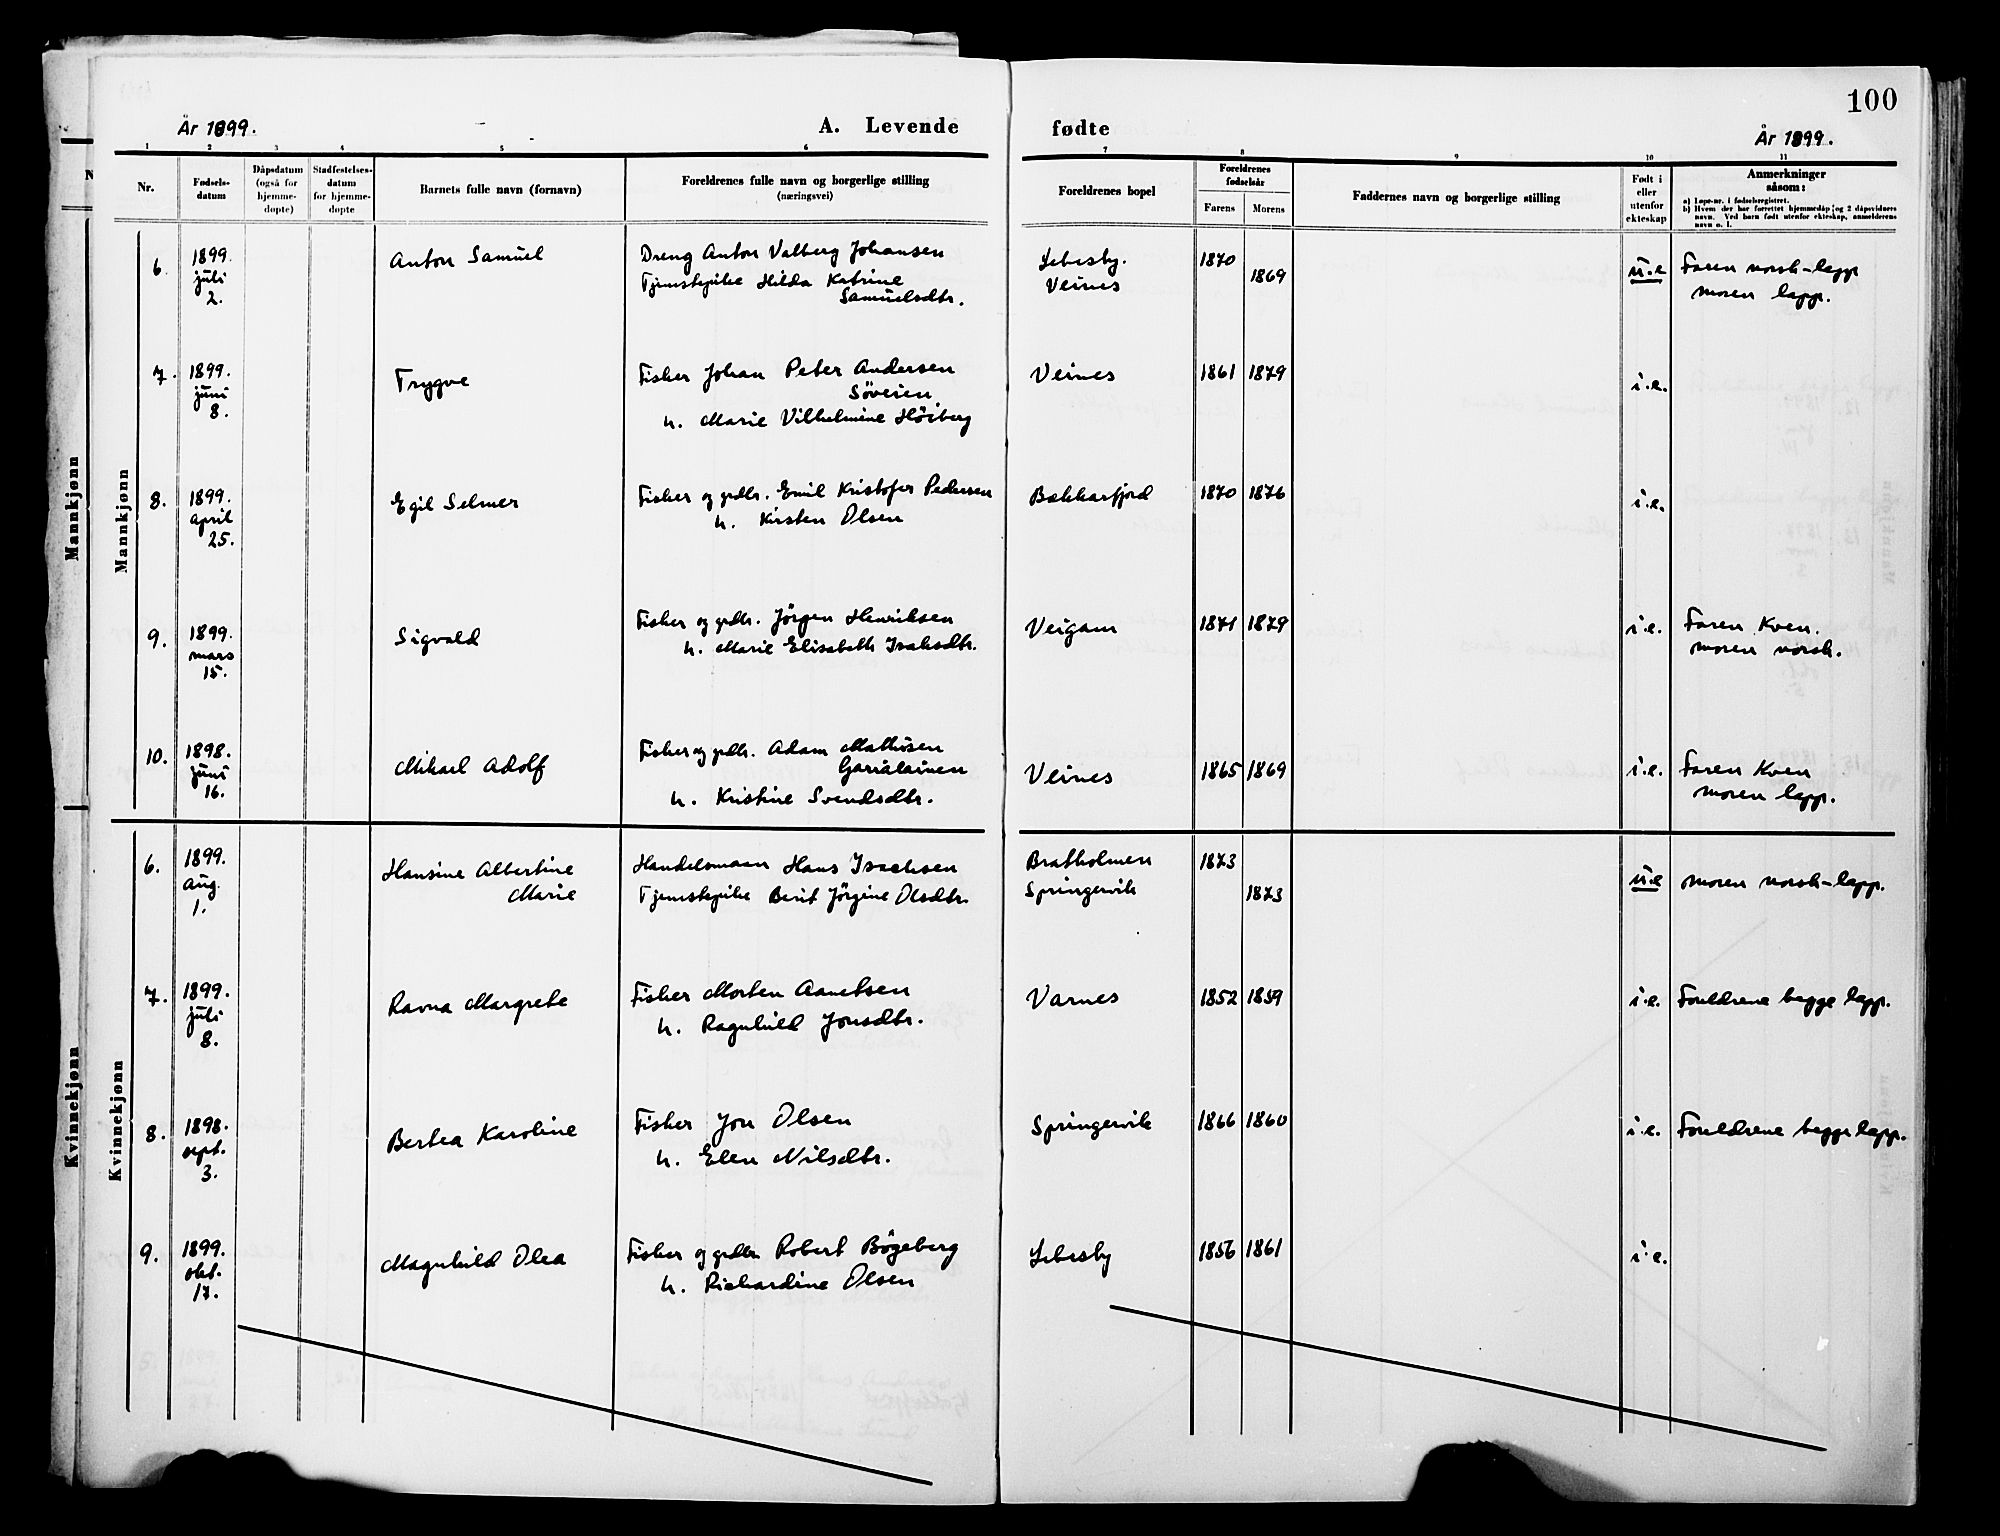 100
År 1899.
A. Levende
fødte
År 1899.
1 2 3 4 5 6 7 8 9 10 11
Nr.
Fødsels-
datum
Dåpsdatum
(også for
hjemme-
døpte)
Stadfestelses-
datum
for hjemme-
døpte
Barnets fulle navn (fornavn)
Foreldrenes fulle navn og borgerlige stilling
(næringsvei)
Foreldrenes bopel
Foreldrenes
fødselsår
Farens Morens
Faddernes navn og borgerlige stilling
Født i
eller
utenfor
ekteskap
Anmerkninger
såsom:
a) Løpe-nr. i fødselsregistret.
b) Hvem der har forrettet hjemmedåp og 2 dåpsvidners
navn. Ved barn født utenfor ekteskap, anmelderens
navn o. l.
Mannkjønn
Mannkjønn
6.
1899.
juli
2.
Anton Samuel
Dreng Anton Valberg Johansen
Tjenestepike Hilda Katrine
Samuelsdtr.
Lebesby.
Veines
1870
1869
u.e
Faren norsk-lapp
moren lapp.
7.
1899.
juni
8.
Trygve
Fisker Johan Peter Andersen
Söveien
h. Marie Vilhelmine Höiberg
Veines
1861 1879
i.e.
8.
1899.
april
25.
Egil Selmer
Fisker og grdbr. Emil Kristofer Pedersen
h. Kirsten Olsen
Bekkarfjord
1870 1876
i.e.
9.
1899.
mars
15.
Sigvald
Fisker og grdbr. Jörgen Henriksen
h. Marie Elisabeth Isaksdtr.
Veigam
1871 1879
i.e.
Faren Kven.
moren norsk.
10.
1898.
juni
16.
Mikael Adolf
Fisker og grdbr. Adam Mathisen
Garialainen
h. Kristine Svendsdtr.
Veines
1865 1869
i.e.
Faren Kven
moren lapp.
Kvinnekjønn
Kvinnekjønn
6.
1899.
aug.
1.
Hansine Albertine
Marie
Handelsmann Hans Isachsen
Tjenestepike Berit Jörgine Olsdtr.
Bratholmen
Springervik
1873
1873
u.e
moren norsk-lapp.
7.
1899.
juli
8.
Ravna Margrete
Fisker Morten Aanetsen
h. Ragnhild Jonsdtr.
Varnes
1852 1859
i.e.
Foreldrene begge lapp.
8.
1898.
sept.
3.
Bertea Karoline
Fisker Jon Olsen
h. Elen Nilsdtr.
Springervik
1866 1860
i.e.
Foreldrene begge lapp.
9.
1899.
okt.
17.
Magnhild Olea
Fisker og grdbr Robert Bögeberg
h. Richardine Olsen
Lebesby
1856 1861
i.e.